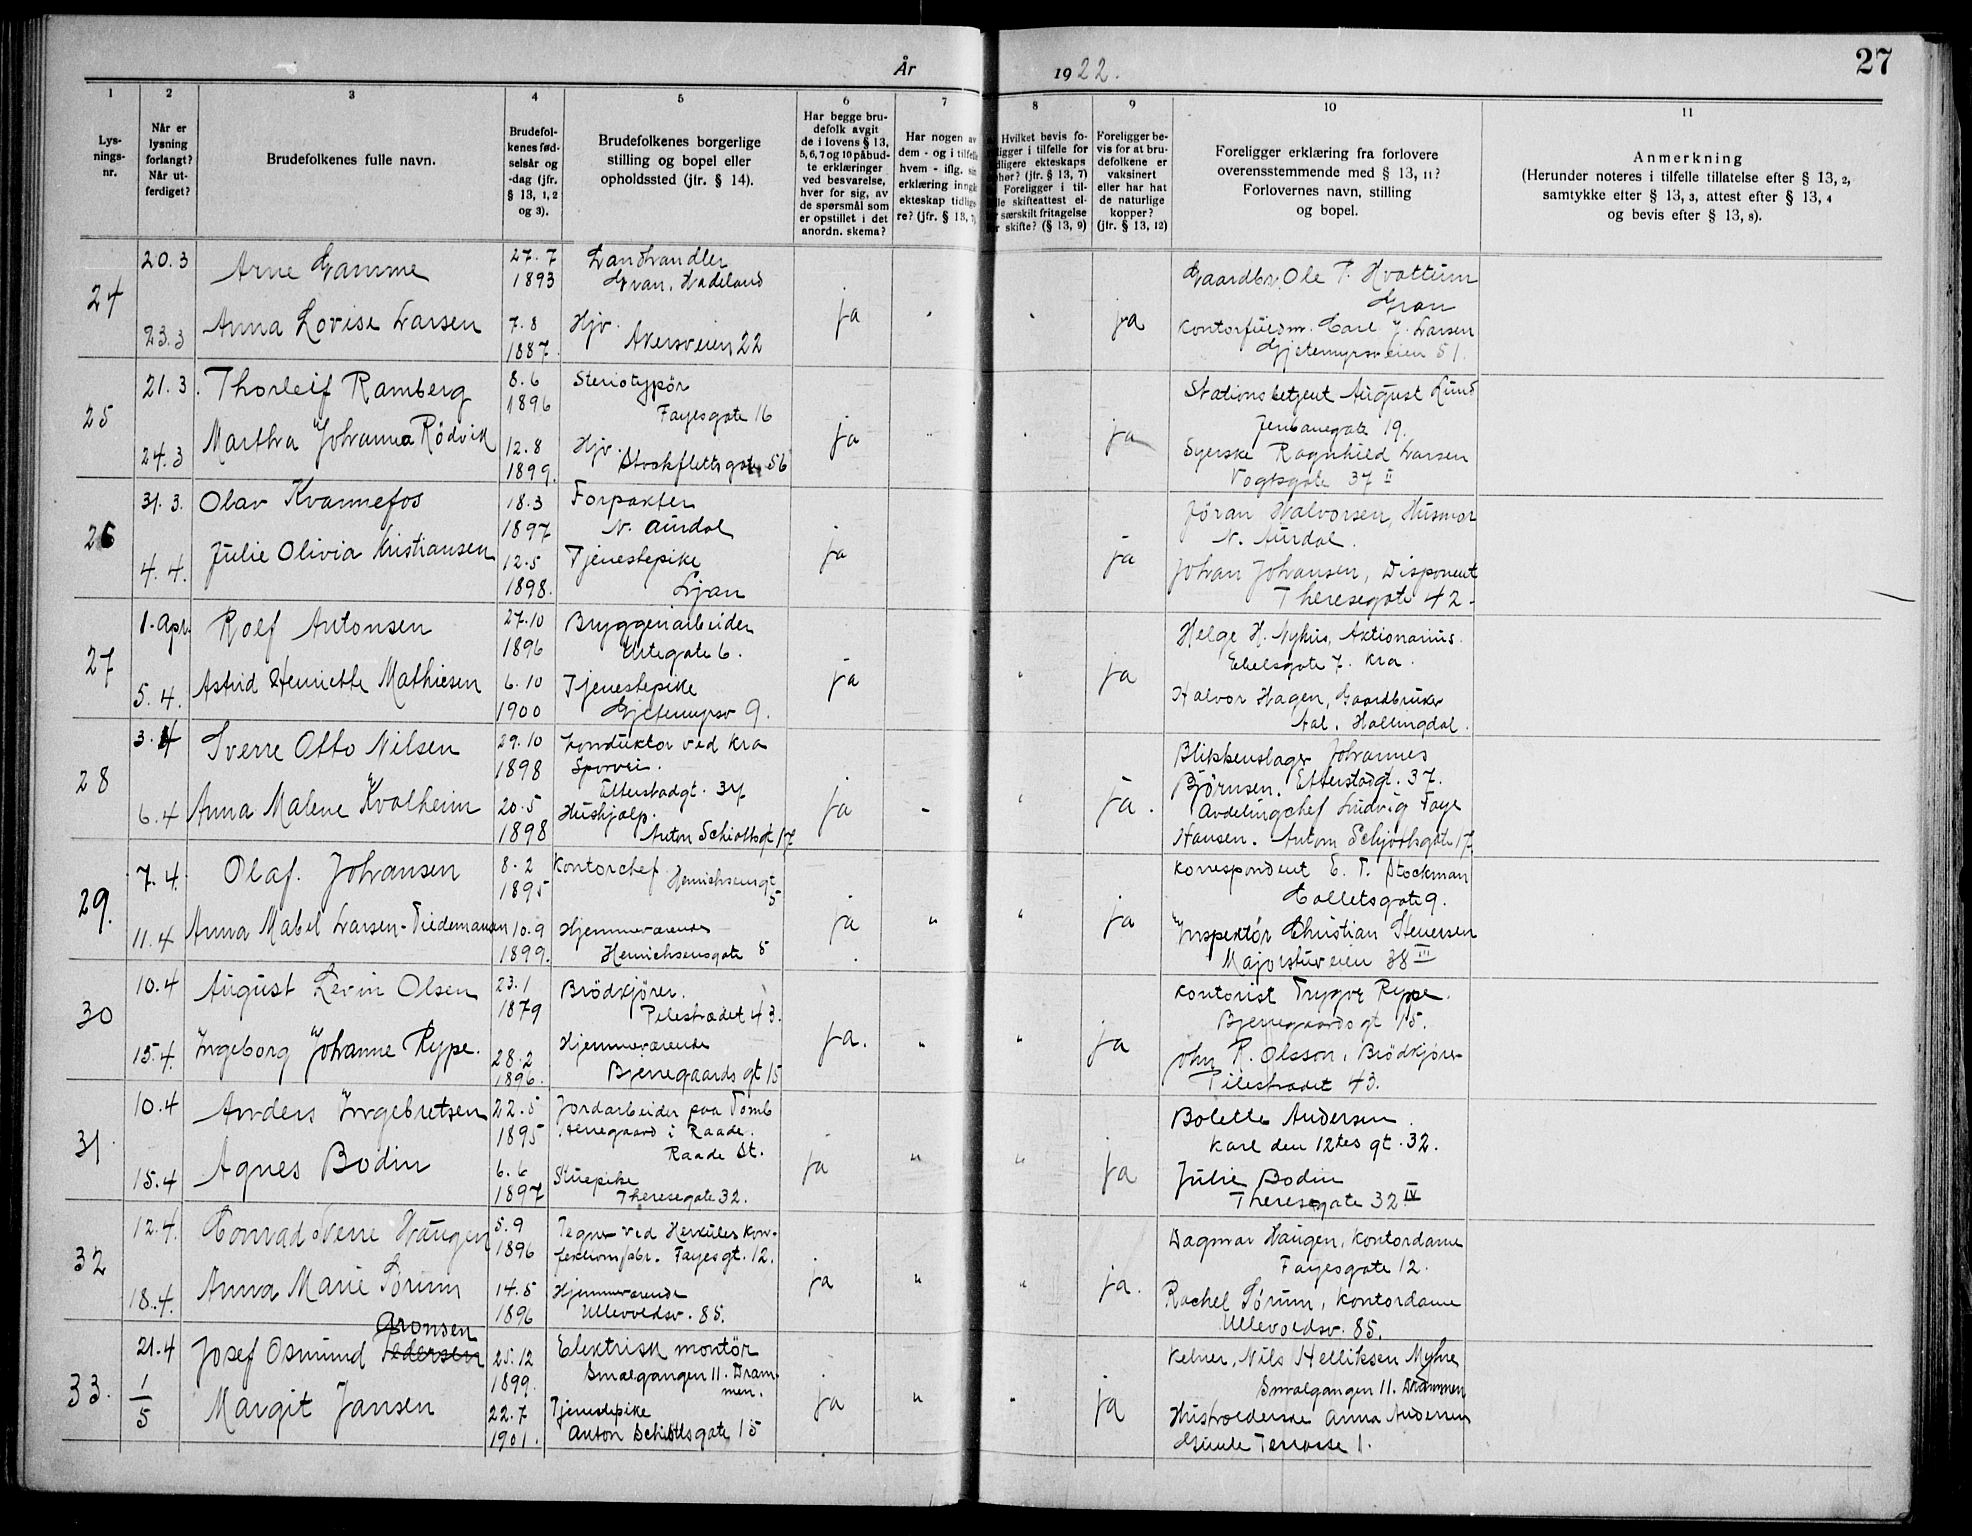 År 1922.
27
1 2 3 4 5 6 7 8 9 10 11
Lys-
nings-
nr.
Når er
lysning
forlangt?
Når ut-
ferdiget?
Brudefolkenes fulle navn.
Brudefol-
kenes fød-
selsår og
-dag (jfr.
§ 13, 1, 2
og 3).
Brudefolkenes borgerlige
stilling og bopel eller
opholdssted (jfr. § 14).
Har begge bru-
defolk avgit
de i lovens § 13,
5, 6, 7 og 10 påbud-
te erklæringer
ved besvarelse,
hver for sig, av
de spørsmål som
er opstillet i det
anordn. skema?
Har nogen av
dem - og i tilfelle
hvem - iflg. sin
erklæring inngå
ekteskap tidlige
re? (jfr. § 13, 7)
Hvilket bevis fo-
ligger i tilfelle for
dligere ekteskaps
phør? (jfr. § 13, 7)
Foreligger i til-
le skifteattest el-
r særskilt fritagelse
r skifte? (§ 13, 9)
Foreligger be-
vis for at bru-
defolkene er
vaksinert
eller har hat
de naturlige
kopper?
(jfr. § 13, 12)
Foreligger erklæring fra forlovere
overensstemmende med § 13, 11?
Forlovernes navn, stilling
og bopel.
Anmerkning
(Herunder noteres i tilfelle tillatelse efter § 13, 2,
samtykke efter § 13, 3, attest efter § 13, 4
og bevis efter § 13, 8).
24
20.3
23.3
Arne Gamme
Anna Lovise Larsen
27.7
1893
7.8
1887.
Landhandler
Gran, Hadeland
Hjv.
Akersveien 22
ja
ja
Gaardbr. Ole P. Hvattum
Gran
Kontorfuldm. Carl J. Larsen
Gjetemyrsveien 51.
25
21.3.
24.3
Thorleif Ramberg
Martha Johanna Rödvik
8.6
1896
12.8
1899.
Steriotypör
Fayesgate 16
Hjv.
Stockflethsgate 56
ja
ja
Stationsbetjent August Lund
Jernbanegate 19.
Syerske Ragnhild Larsen
Vogtsgate 37 II
26
31.3.
4.4.
Olav Kvannefos
Julie Olivia Kristiansen
18.3
1897
12.5
1898.
Forpakter
N. Aurdal
Tjenestepike
Ljan
ja
ja
Jöran Halvorsen, Husmor
N. Aurdal.
Johan Johansen, Disponent
Theresegate 42.
27
1.Apr.
5.4.
Rolf Antonsen
Astrid Henriette Mathiesen
27.10
1896
6.10
1900
Bryggeriarbeider
Urtegate 6.
Tjenestepike
Gjetemyrsv 9.
ja
ja
Helge H. Nyhus, Aktionarius.
Ebelsgate 7. Kra.
Halvor Hagen, Gaardbruker
Aal, Hallingdal.
28
3.4
6.4
Sverre Otto Nilsen
Anna Malene Kvalheim
29.10
1898
20.5
1898
Konduktor ved Kra
Sporvei.
Etterstadgt. 37
Hushjælp.
Anton Schiøttsgt 17
ja
ja.
Blikkenslager Johannes
Bjørnsen. Etterstadgt. 37.
Avdelingschef Ludvig Faye
Hansen. Anton Schjøthsgate 17.
29.
7.4.
11.4
Olaf. Johansen
Anna Mabel Larsen-Tiedemann
8.2
1895
10.9
1899.
Kontorchef Henrichsensgt
5
Hjemmeværende
Henrichsensgate 5
ja
"
"
ja
Korrespondent E. T. Stockman
Colletsgate 9.
Inspektör Christian Stenersen
Majorstuveien 38 III
30
10.4
15.4.
August Levin Olsen
Ingeborg Johanne Rype.
23.1
1879
28.2
1896.
Brödkjörer.
Pilestrædet 43.
Hjemmeværende
Bjerregaards gt 15
ja.
"
"
ja
Kontorist Trygve Rype.
Bjerregaards gt 15.
John R. Olsson, Brödkjörer
Pilestrædet 43.
31
10.4
15.4
Anders Ingebretsen
Agnes Bodin
22.5
1895
6.6
1897
Jordarbeider paa Tomb
Herregaard i Raade.
Raade St.
Stuepike
Theresegate 32.
ja
"
"
ja
Bolette Andersen.
Karl den 12tes gt. 32.
Julie Bodin
Theresegate 32 IV
32
12.4.
18.4.
Conrad Sverre Haugen
Anna Marie Sørum
5.9
1896
14.5
1896
Tegner ved Herkules kon-
fektionsfabr. Fayesgt. 12.
Hjemmeværende
Ullevoldsv. 85.
ja
"
"
ja.
Dagmar Haugen, Kontordame
Fayesgate 12.
Rachel Sørum, Kontordame
Ullevoldsv. 85.
33.
21.4
1/5
Aronsen
Josef Osmund Pedersen
Margit Jansen
25.12
1899.
22.7
1901.
Elektrisk montör
Smalgangen 11. Dram-
men.
Tjenestepike
Anton Schiøttsgate 15
ja
"
"
ja
Kelner, Nils Helliksen Myhre
Smalgangen 11. Drammen
Husholderske Anna Andersen
Gimle Terrasse 1.